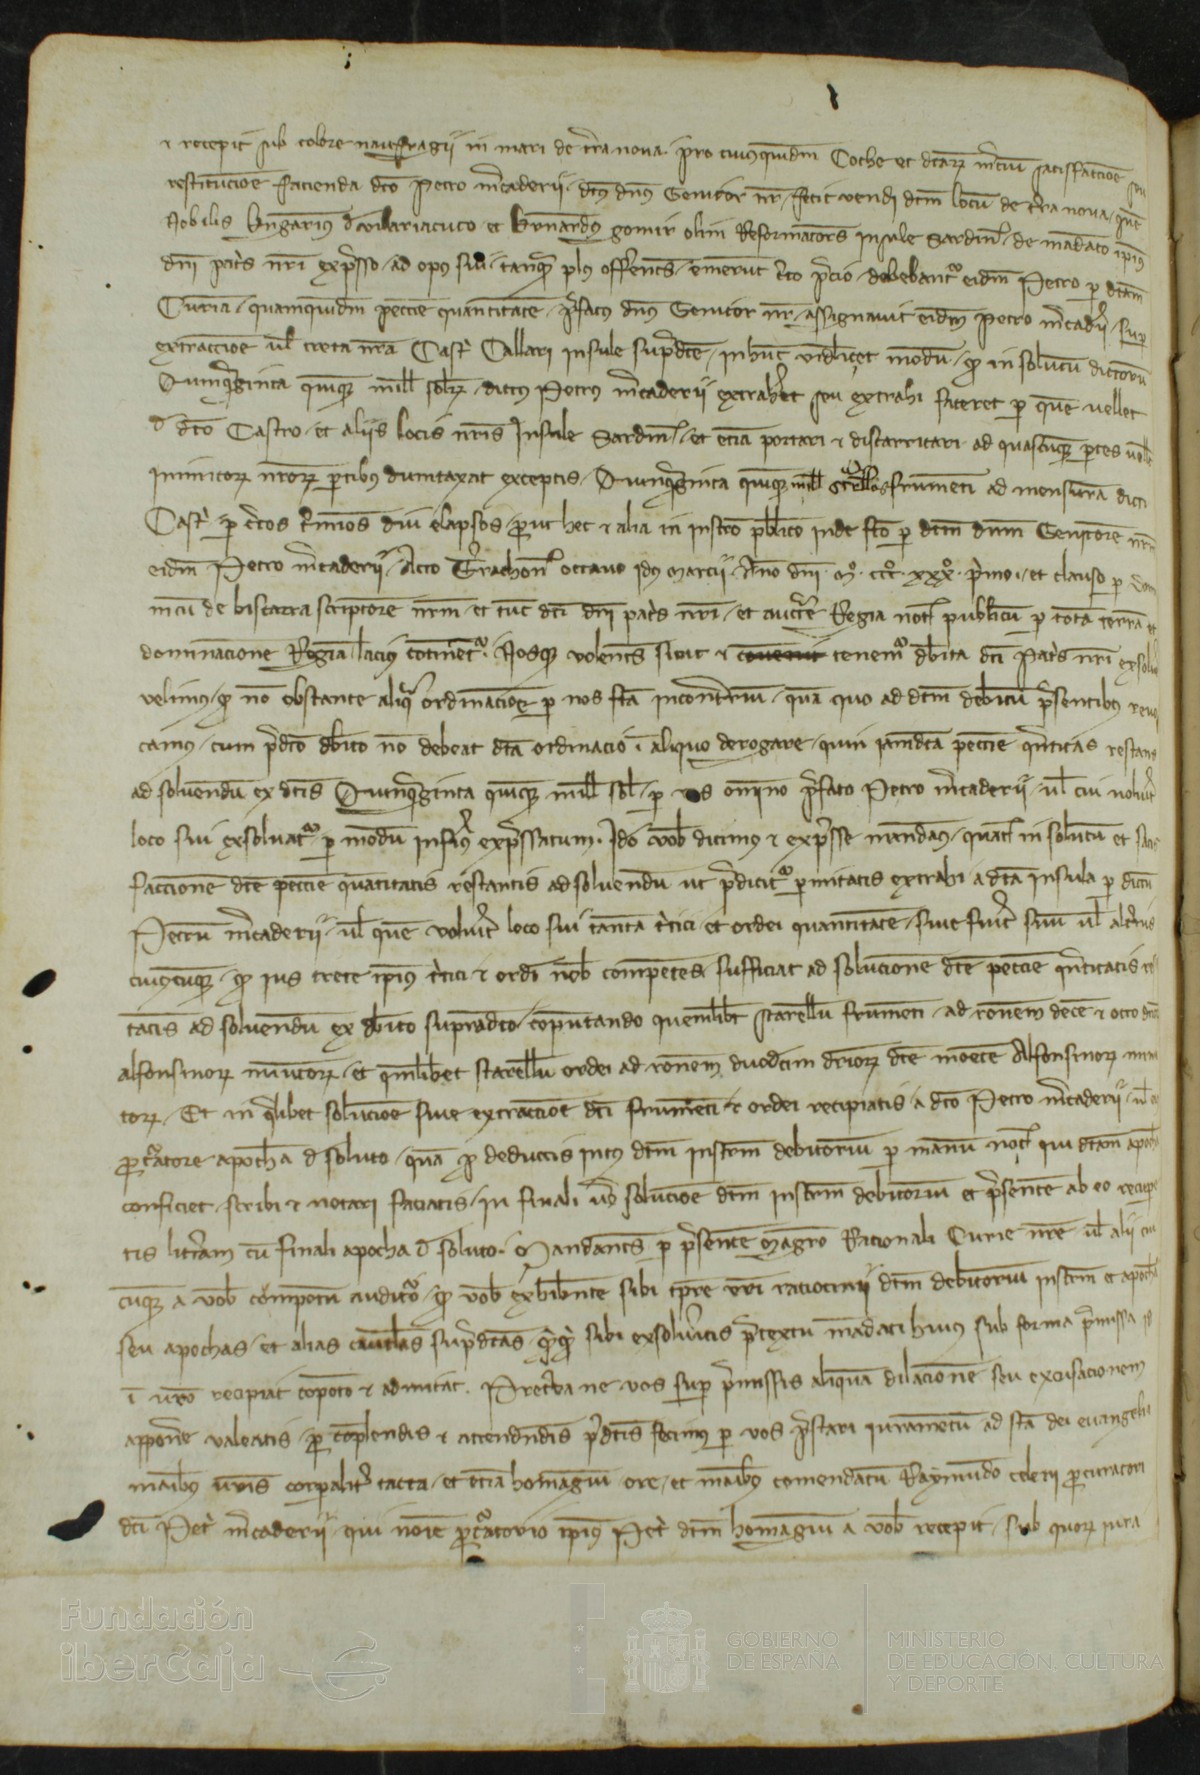 et recepit sub colore naufragii in mari de terra nova pro cuiusquidem Coche et dictarum mercium satisfaccione seu
restitucione facienda dicto Petro mercaderii dictus dns Genitor nr fecit vendi dictm locum de terra nova quem
Nobilis Bngarius d vilariacuto et Bernardus gomir olim Reformatores Insule Sardin de mandato ipius
dni patris nri expresso ad opus sui tanquam plus offerentes emerunt certo precio debebantur eidem Petro per dictam
Curia quamquidem peccie quantitatem prefatus dns Genitor nr assignavit eidem Petro mercaderii super
extraccione vel treta nra Castri Callari Insule supradicte in hunc videlicet modum quod in solutum dictorum
Quinquaginta quinque mille solidorum dictus Petrus mercaderii extraheret seu extrahi faceret per quem vellet
d dicto Castro et aliis locis nris Insule Sardin et etiam portari et discarricari ad quascumque partes vellet
inimicorum nrorum partibus dumtaxat exceptis Quinquaginta quinque mille starellos frumenti ad mensuram dicti
Castri per certos terminos diu elapsos prout hec et alia in instro publico inde facto per dictm dnm Genitorem nrm
eidem Petro mercaderii Acto Terrachone octavo idus marcii Anno dni mº cccº xxxº primo et clauso per dom
inicum de biscarra scriptore nrm et tunc dicti dni patris nri et auctoritate Regia not publicum per totam terram et
dominacionem Regiam lacius continetur Nosque volentes sicut et tenemur debita dicti patris nri exsolvi
velimus quod non obstante aliqua ordinacione per nos facta in contrarium quam quo ad dictm debitum presentibus revo
camus cum predicto debito non debeat dicta ordinacio in aliquo derogare quin iamdicta peccie quantitas restans
ad solvendum ex dictis Quinquaginta quinque mille sol per vos omnino prefato Petro mercaderii vel cui voluerit
loco sui exsolvatur per modum inferius expressatum Ideo vobis dicimus et expresse mandamus quatenus in solutum et satis
faccionem dicte peccie quantitatis restantis ad solvendum ut predicitur permitatis extrahi a dicta insula per dictum
Petrum mercaderii vel quem voluerit loco sui tantam tritici et ordei quantitatem sive fuerit suum vel alterius
cuiuscumque quod ius trete ipius tritici et ordei nobis competens sufficiat ad solucionem dicte peccie quantitatis res
tantis ad solvendum ex debito supradicto computando quemlibet starellum frumenti ad racionem decem et octo denar
alfonsinorum minutorum et quemlibet starellum ordei ad racionem duodecim denariorum dicte monete Alfonsinorum minu
torum Et in qualibet solucione sive extraccione dicti frumenti et ordei recipiatis a dicto Petro mercaderii vel eius
procuratore apocham d soluto quam quod deduccis intus dictm instrm debitorium per manum not qui dictam apocham
conficiet scribi et notari faciatis in finali vero solucione dictm instrm debitorium et presentem ab eo recupe
tis litteram cum finali apocha d soluto Mandantes per presentem Magistro Racionali Curie nre vel alii cui
cumque a vobis compotum audituro quod vobis exhibente sibi tempore vri raciocinii dictm debitorium instrm et apocham
seu apochas et alias cautelas supradictas quicquid sibi exsolveritis pretextu mandati huius sub forma premissa id
in vro recipiat compoto et admitat Preterea ne vos super premissis aliquam dilacionem seu excusacionem
apponere valeatis pro complendis et attendendis predictis fecimus per vos prestari iuramentum ad sta dei evangelia
manibus vris corporaliter tacta et etiam homagium ore et manibus comendatum Raymundo celerii procuratori
dicti Petri mercaderii qui noie procuratorio ipius Petri dictm homagium a vobis recepit sub quorum iura
Fundación
iberCaja
GOBIERNO
DE ESPAÑA
MINISTERIO
DE EDUCACIÓN, CULTURA
Y DEPORTE